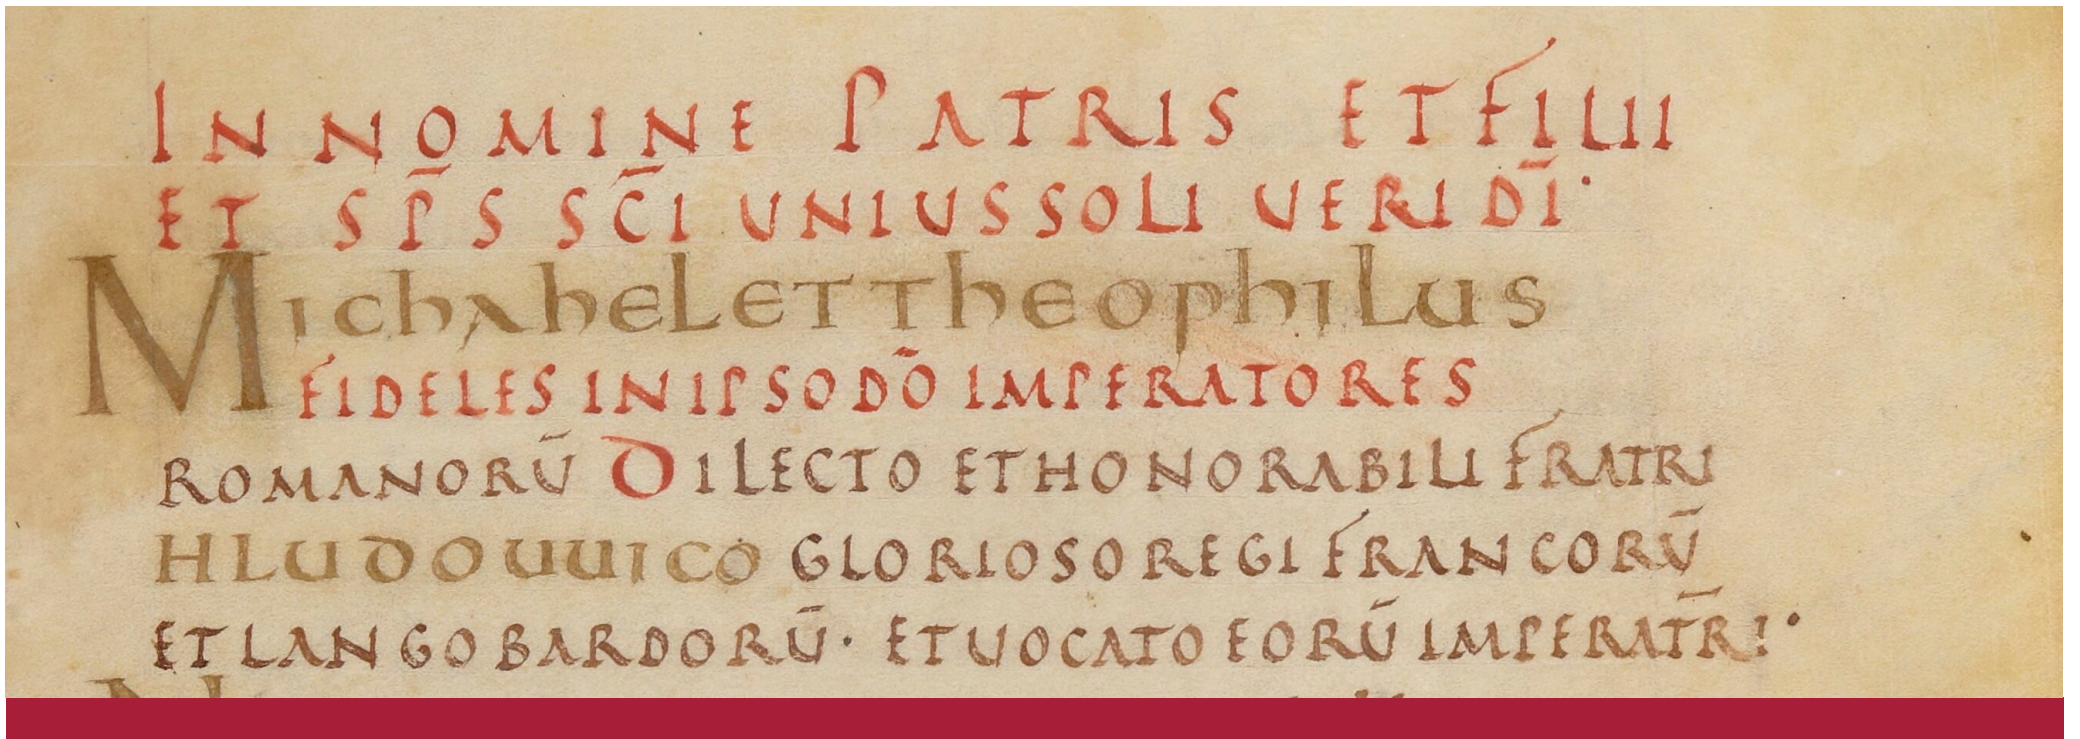 IN NOMINE PATRIS ET FILII
ET SP̄S SC̄I UNIUS SOLI UERI DĪ·
MICHAHEL ET THEOPHILUS
FIDELES IN IPSO DŌ IMPERATORES
ROMANORŪ DILECTO ET HONORABILI FRATRI
HLUDOUUICO GLORIOSO REGI FRANCORŪ
ET LANGOBARDORŪ· ET UOCATO EORŪ IMPERAT̄RI·